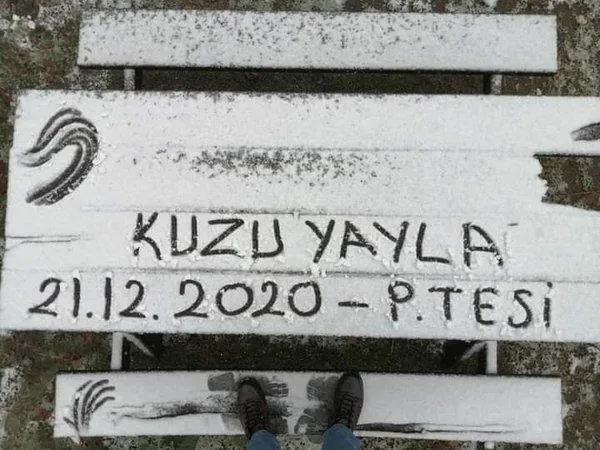 KUZU YAYLA
21.12.2020 - P.TESİ